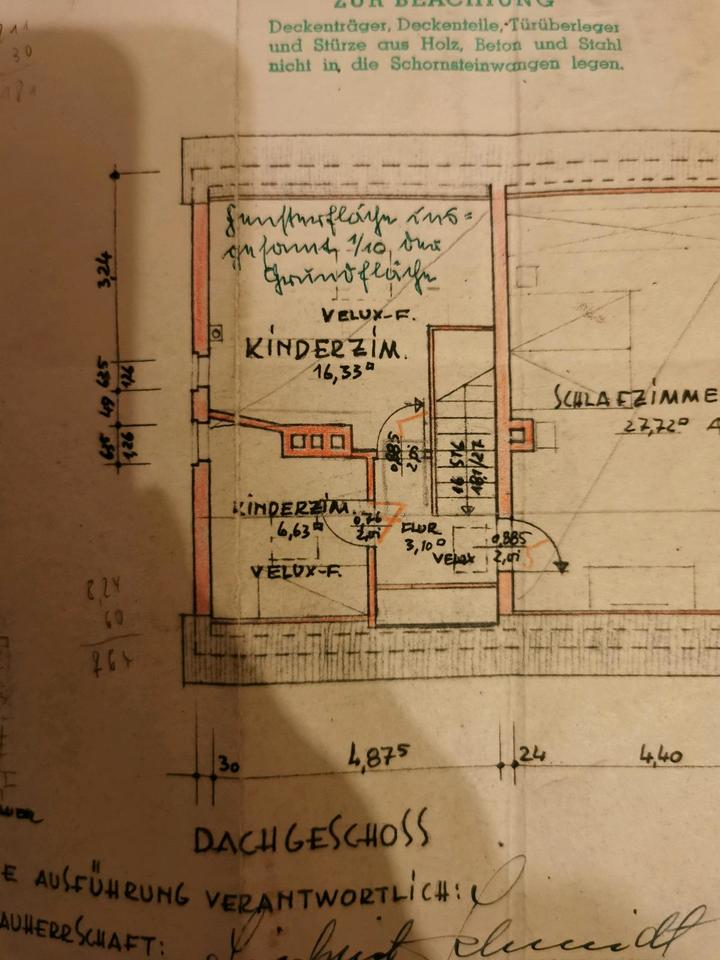 ZUR BEACHTUNG
Deckenträger, Deckenteile, Türüberleger
und Stürze aus Holz, Beton und Stahl
nicht in die Schornsteinwangen legen.
30
Fensterfläche ins=
gesamt 1/10 der
Grundfläche
VELUX-F.
KINDERZIM.
16,33
3,24
635
126
49
635
126
SCHLAFZIMME
27,72
0,885
2,01
16 STG
18,1/27
KINDERZIM.
6,63
VELUX-F.
0,76
2,01
FLUR
3,10
VELUX
0,885
2,01
8,24
60
764
30
4,87⁵
24
4,40
DACHGESCHOSS
E AUSFÜHRUNG VERANTWORTLICH:
AUHERRSCHAFT:
Schmidt